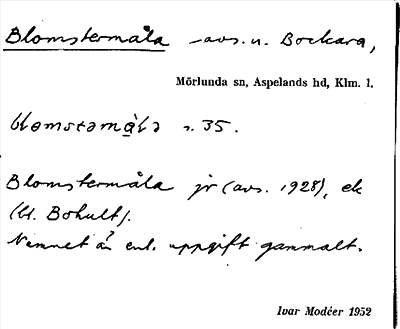 Blomstermåla avs. u. Bockara,
Mörlunda sn, Aspelands hd, Klm. l.
s. 35.
Blomstermåla jr (avs. 1928), ek
(bl. Bohult).
Namnet är enl. uppgift gammalt.
Ivar Modéer 1952